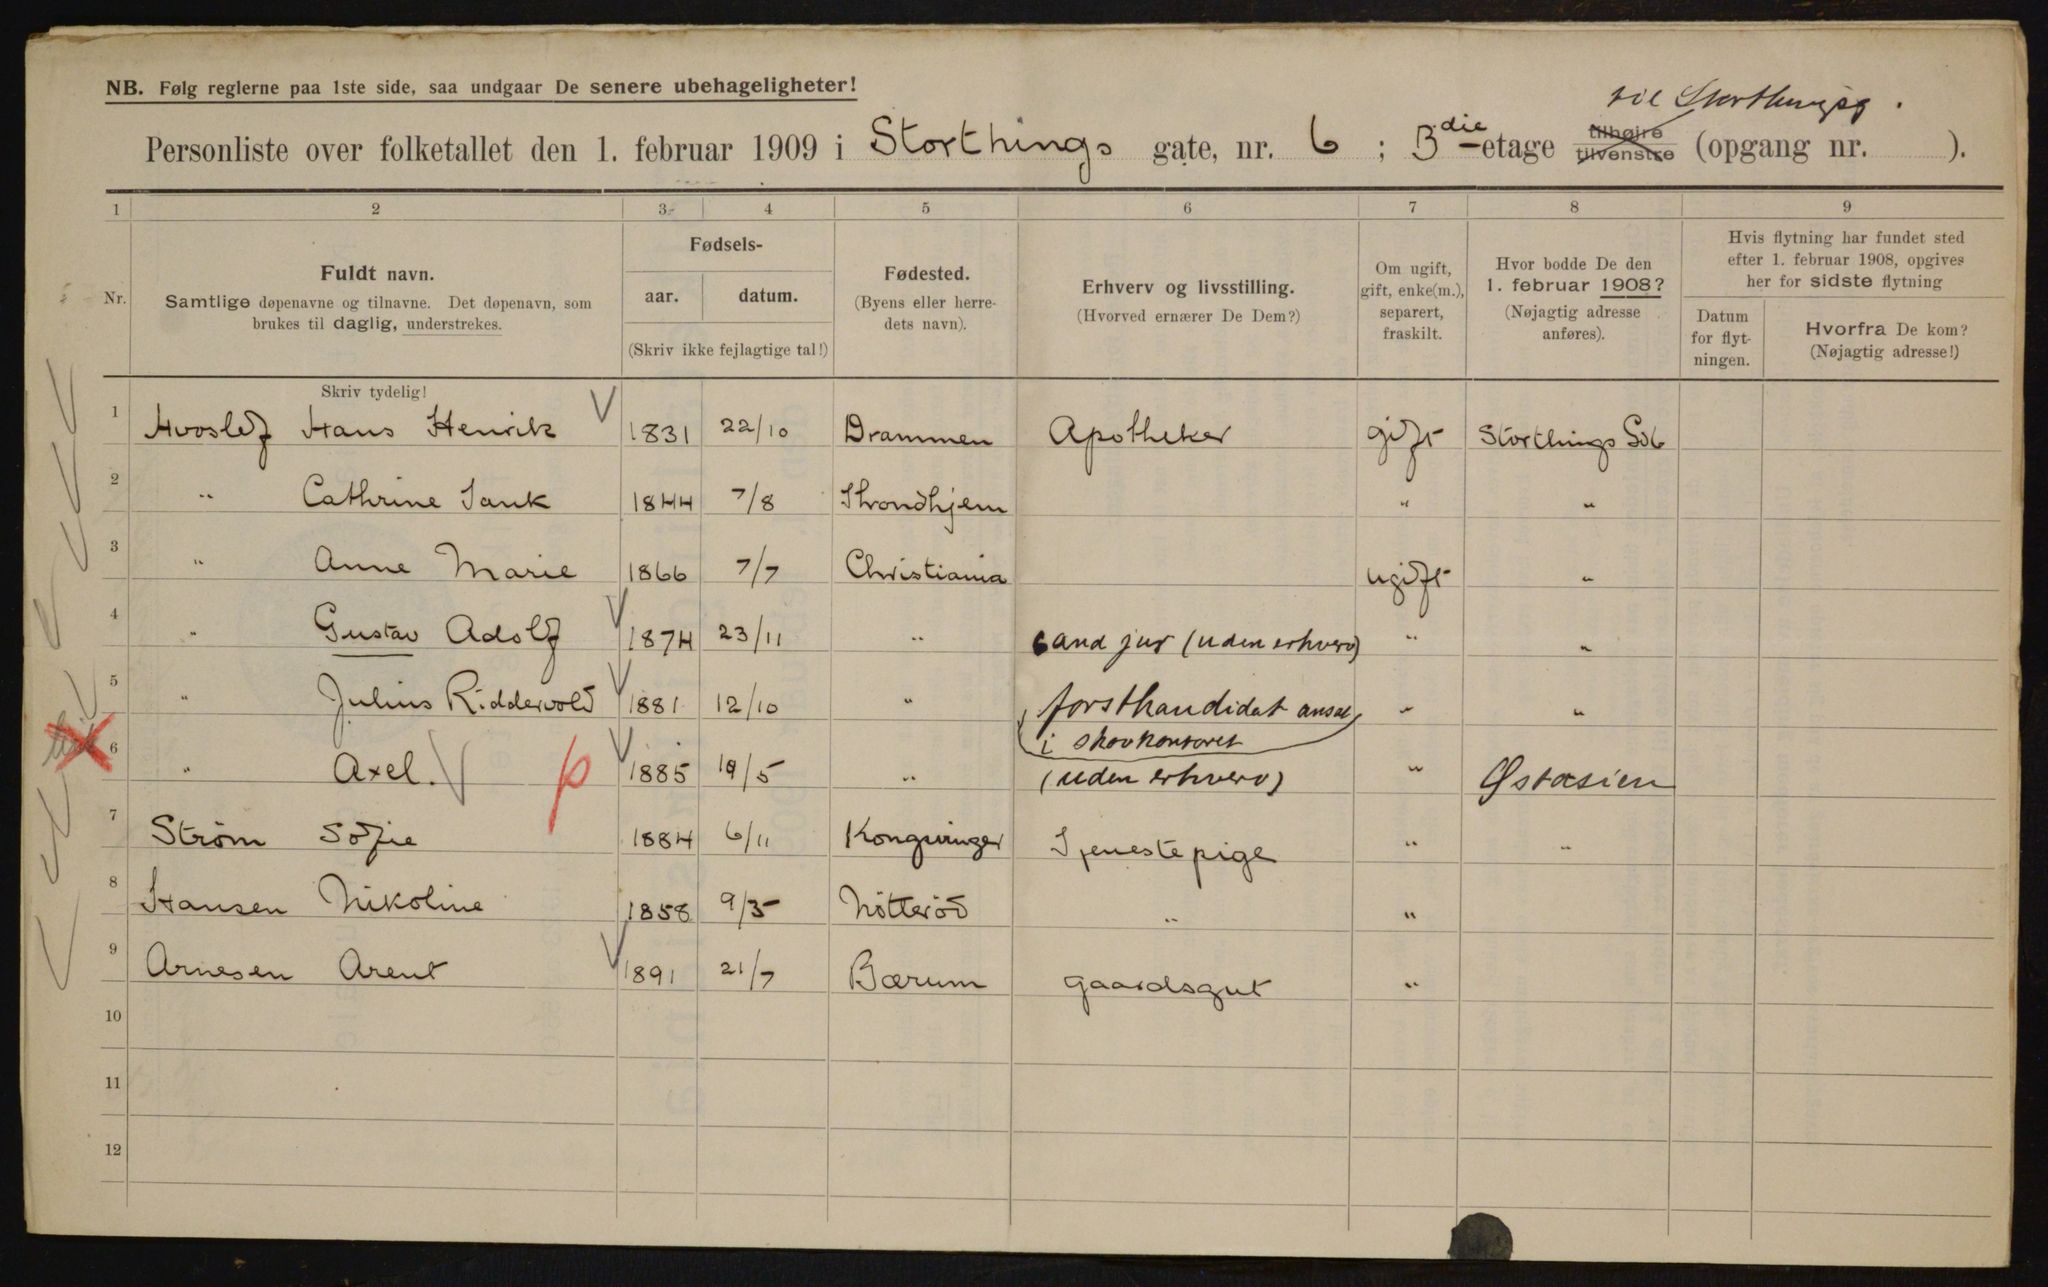 NB. Følg reglerne paa 1ste side, saa undgaar De senere ubehageligheter!
til Storthingsg.
Personliste over folketallet den 1. februar 1909 i Storthings gate, nr. 6 ; 3die etage tilhøjre tilvenstre (opgang nr. ).
1 2 3 4 5 6 7 8 9
Nr. Fuldt navn. Samtlige døpenavne og tilnavne. Det døpenavn, som brukes til daglig, understrekes.
Fødsels- aar. datum. (Skriv ikke fejlagtige tal!)
Fødested. (Byens eller herredets navn).
Erhverv og livsstilling. (Hvorved ernærer De Dem?)
Om ugift, gift, enke(m.), separert, fraskilt.
Hvor bodde De den 1. februar 1908? (Nøjagtig adresse anføres).
Hvis flytning har fundet sted efter 1. februar 1908, opgives her for sidste flytning
Datum for flytningen. Hvorfra De kom? (Nøjagtig adresse!)
Skriv tydelig!
1 Hvoslef Hans Henrik 1831 22/10 Drammen Apotheker gift Storthings Gd 6
2 " Cathrine Tank 1844 7/8 Throndhjem " "
3 " Anne Marie 1866 7/7 Christiania ugift "
4 " Gustav Adolf 1874 23/11 " cand jur (uden erhverv) " "
5 " Julius Riddervold 1881 12/10 " forstkandidat ansat i skovkontoret " "
6 " Axel. p 1885 19/5 " (uden erhverv) " Østasien
7 Strøm Sofie 1884 6/11 Kongsvinger Tjenestepige " "
8 Hansen Nikoline 1858 9/3 Nötteröd " "
9 Arnesen Arent 1891 21/7 Bærum gaardsgut "
10
11
12